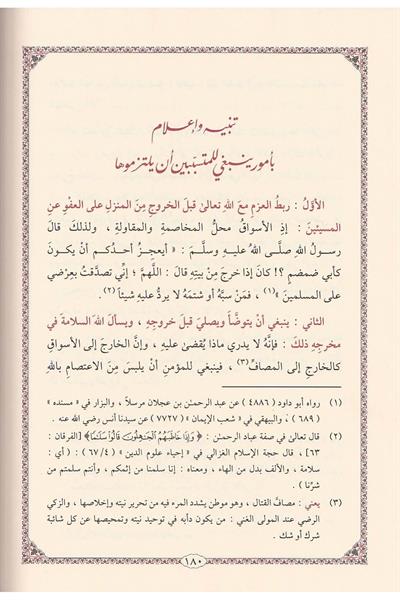 تنبيه وإعلام
بأمور ينبغي للمتسببين أن يلتزموها
الأوّلُ : ربطُ العزمِ معَ اللهِ تعالىٰ قبلَ الخروجِ مِنَ المنزلِ على العفوِ عنِ
المسيئينَ : إذِ الأسواقُ محلُّ المخاصمةِ والمقاولةِ ، ولذلكَ قالَ
رسولُ اللهِ صلَّى اللهُ عليهِ وسلَّمَ : « أيعجِزُ أحدُكم أنْ يكونَ
كأبي ضمضمٍ ؟! كانَ إذا خرجَ مِنْ بيتِهِ قالَ : اللَّهمَّ ؛ إنِّي تصدَّقتُ بعِرْضي
على المسلمينَ »(١) ، فمَنْ سبَّهُ أو شتمَهُ لا يردُّ عليهِ شيئاً(٢) .
الثاني : ينبغي أنْ يتوضَّأَ ويصليَ قبلَ خروجِهِ ، ويسألَ اللهَ السلامةَ في
مخرجِهِ ذلكَ : فإنَّهُ لا يدري ماذا يُقضىٰ عليهِ ، وإنَّ الخارجَ إلى الأسواقِ
كالخارجِ إلى المصافِّ(٣) ، فينبغي للمؤمنِ أنْ يلبسَ مِنَ الاعتصامِ باللهِ
(١) رواه أبو داود ( ٤٨٨٦ ) عن عبد الرحمٰن بن عجلان مرسلاً ، والبزار في « مسنده »
( ٦٨٩ ) ، والبيهقي في « شعب الإيمان » ( ٧٧٢٧ ) عن سيدنا أنس رضي الله عنه .
(٢) قال تعالىٰ في صفة عباد الرحمٰن : ﴿ وَإِذَا خَاطَبَهُمُ الْجَاهِلُونَ قَالُوا سَلَامًا ﴾ [الفرقان :
٦٣] ، قال حجة الإسلام الغزالي في « إحياء علوم الدين » ( ٤/ ٦٧ ) : ( أي :
سلامة ، والألف بدل من الهاء ، ومعناه : إنا سلمنا من إثمكم ، وأنتم سلمتم من
شرِّنا ) .
(٣) يعني : مصافَّ القتال ، وهو موطن يشدد المرء فيه من تحرير نيته وإخلاصها ، والزكي
الرضي عند المولى الغني : من يكون دأبه في توحيد نيته وتمحيصها عن كل شائبة
شرك أو شك .
١٨٠